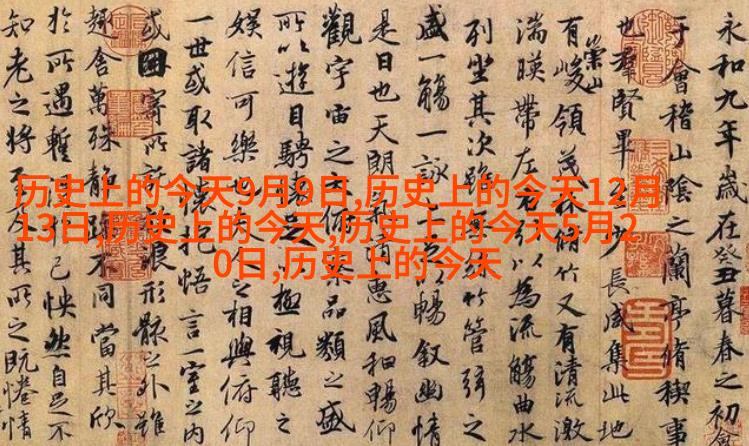 永和九年歲在癸丑暮春之初會
于會稽山陰之蘭亭脩稧事
也羣賢畢至少長咸集此地
有崇山峻領茂林脩竹又有清流激
湍暎帶左右引以為流觴曲水
列坐其次雖無絲竹管弦之
盛一觴一詠亦足以暢叙幽情
是日也天朗氣清惠風和暢仰
觀宇宙之大俯察品類之盛
所以遊目騁懷足以極視聽之
娛信可樂也夫人之相與俯仰
一世或取諸懷抱悟言一室之內
或因寄所託放浪形骸之外雖
趣舍萬殊靜躁不同當其欣
於所遇暫得於己怏然自足不
知老之將至及其所之既惓情
历史上的今天9月9日,历史上的今天12月
13日,历史上的今天,历史上的今天5月2
0日,历史上的今天